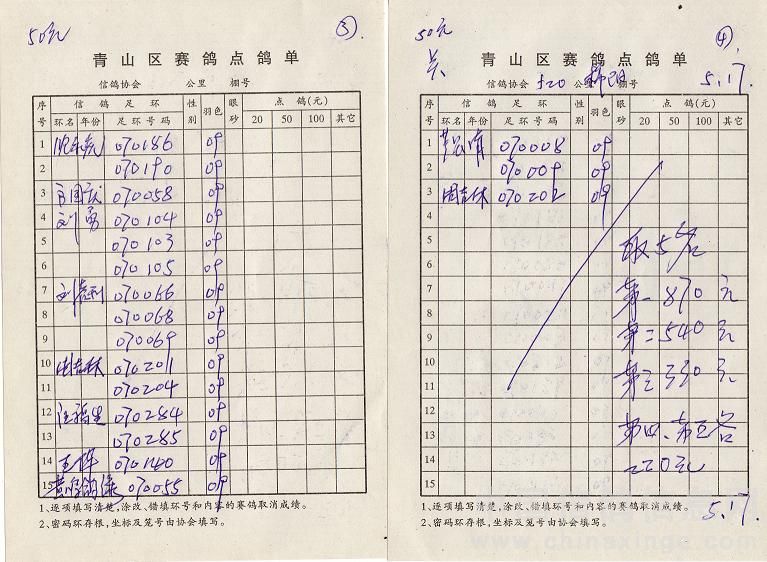 50元 ③
青山区赛鸽点鸽单
信鸽协会 公里 棚号
序号 信鸽足环 性别 羽色 眼砂 点鸽(元)
环名 年份 足环号码 20 50 100 其它
1 070186
2 070190
3 070058
4 刘勇 070104
5 070103
6 070105
7 070066
8 070068
9 070069
10 周吉林 070201
11 070204
12 汪福生 070284
13 070285
14 070140
15 070055
1、逐项填写清楚,涂改、错填环号和内容的赛鸽取消成绩。
2、密码环存根,坐标及笼号由协会填写。
50元 ④
青山区赛鸽点鸽单
信鸽协会 520 公里 棚号 5.17.
序号 信鸽足环 性别 羽色 眼砂 点鸽(元)
环名 年份 足环号码 20 50 100 其它
1 070008
2 070009
3 周吉林 070202
4
5 取5名
6
7 第一870元
8
9 第二540元
10
11 第三330元
12
13 第四、第五名
14 220元
15
1、逐项填写清楚,涂改、错填环号和内容的赛鸽取消成绩。
5.17.
2、密码环存根,坐标及笼号由协会填写。
www.chinaxinge.com